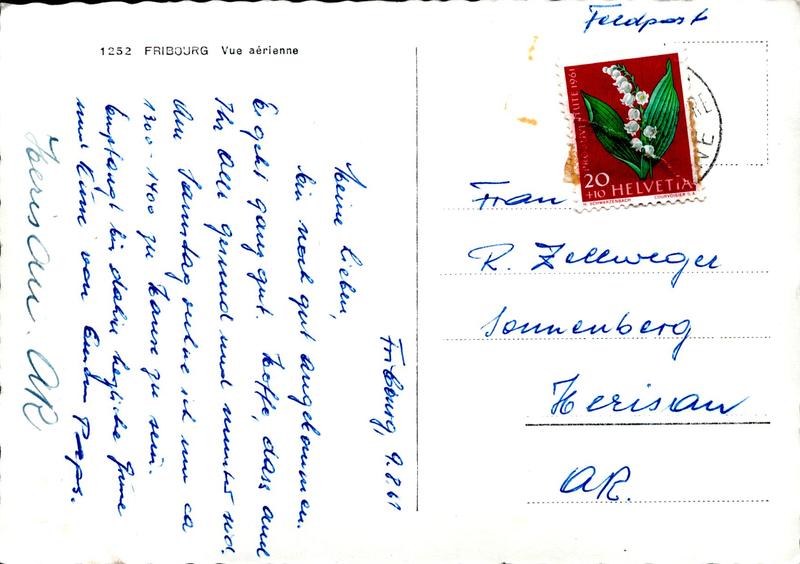 1252 FRIBOURG Vue aérienne
Fribourg, 9.8.61
Meine Lieben,
bin noch gut angekommen.
Es geht ganz gut. Hoffe, dass auch
Ihr alle gesund und munter sid.
Am Samstag ich um ca
1300-1400 zu Hause zu sein.
Empfangt bis dahin herzliche Grüsse
und Küsse von Eurem Paps.
Herisau. AR
Feldpost
20
+10 HELVETIA
PRO JUVENTUTE 1961
H. SCHWARZENBACH COURVOISIER S.A.
Frau
R. Zellweger
Sonnenberg
Herisau
AR.